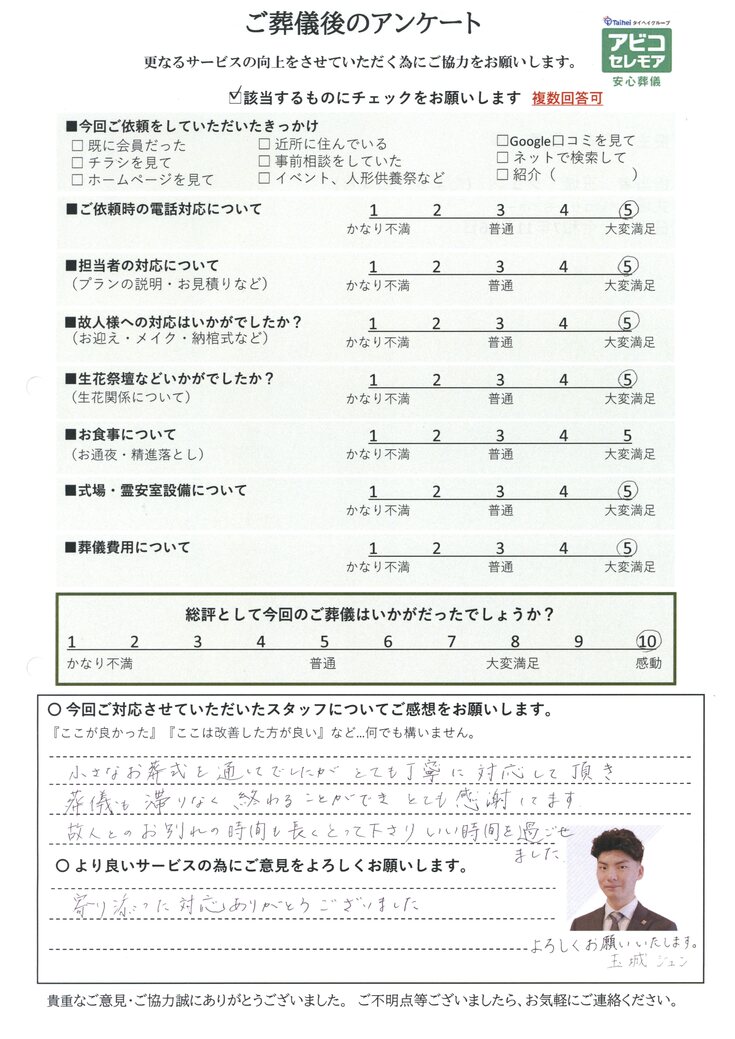 ご葬儀後のアンケート
Taihei タイヘイグループ
アビコ
セレモア
安心葬儀
更なるサービスの向上をさせていただく為にご協力をお願いします。
☑該当するものにチェックをお願いします 複数回答可
■今回ご依頼をしていただいたきっかけ
□ 既に会員だった □ 近所に住んでいる □Google口コミを見て
□ チラシを見て □ 事前相談をしていた □ ネットで検索して
□ ホームページを見て □ イベント、人形供養祭など □ 紹介（ ）
■ご依頼時の電話対応について 1 2 3 4 5
かなり不満 普通 大変満足
■担当者の対応について 1 2 3 4 5
（プランの説明・お見積りなど） かなり不満 普通 大変満足
■故人様への対応はいかがでしたか？ 1 2 3 4 5
（お迎え・メイク・納棺式など） かなり不満 普通 大変満足
■生花祭壇などいかがでしたか？ 1 2 3 4 5
（生花関係について） かなり不満 普通 大変満足
■お食事について 1 2 3 4 5
（お通夜・精進落とし） かなり不満 普通 大変満足
■式場・霊安室設備について 1 2 3 4 5
かなり不満 普通 大変満足
■葬儀費用について 1 2 3 4 5
かなり不満 普通 大変満足
総評として今回のご葬儀はいかがだったでしょうか？
1 2 3 4 5 6 7 8 9 10
かなり不満 普通 大変満足 感動
〇 今回ご対応させていただいたスタッフについてご感想をお願いします。
『ここが良かった』『ここは改善した方が良い』など…何でも構いません。
小さなお葬式を通してでしたが とても丁寧に対応して頂き
葬儀も滞りなく 終わることができ とても感謝してます
故人とのお別れの時間も長くとって下さり いい時間を過ごせ
ました
〇 より良いサービスの為にご意見をよろしくお願いします。
寄り添った対応ありがとうございました
よろしくお願いいたします。
玉城 ジェン
貴重なご意見・ご協力誠にありがとうございました。 ご不明点等ございましたら、お気軽にご連絡ください。